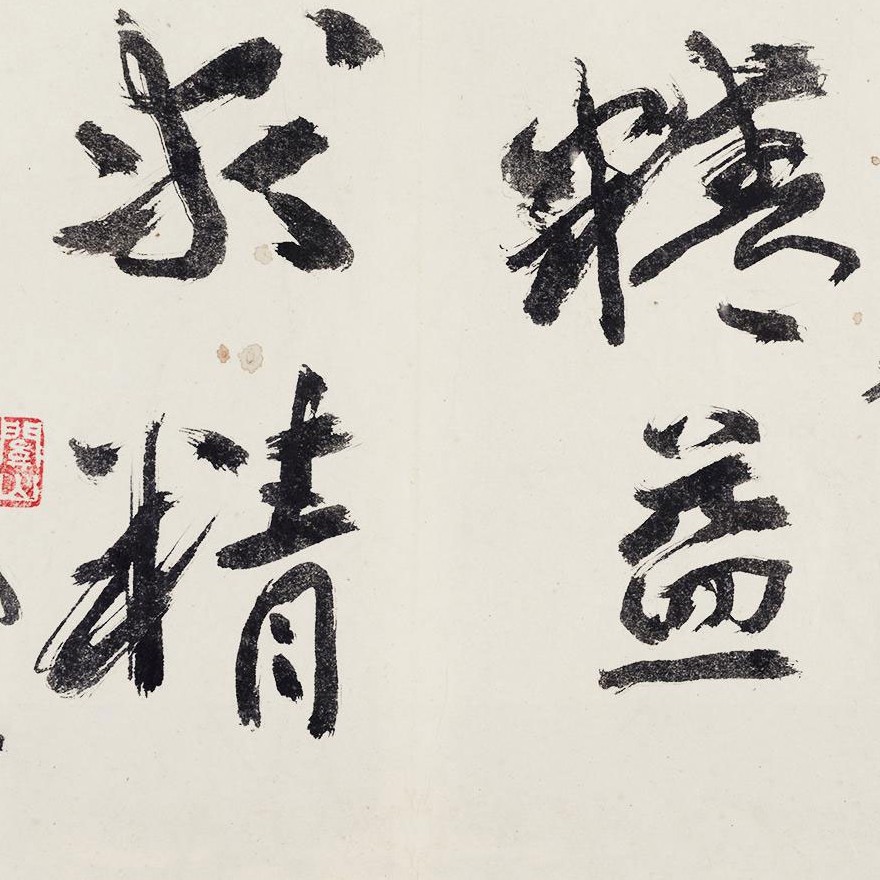 精益
求精